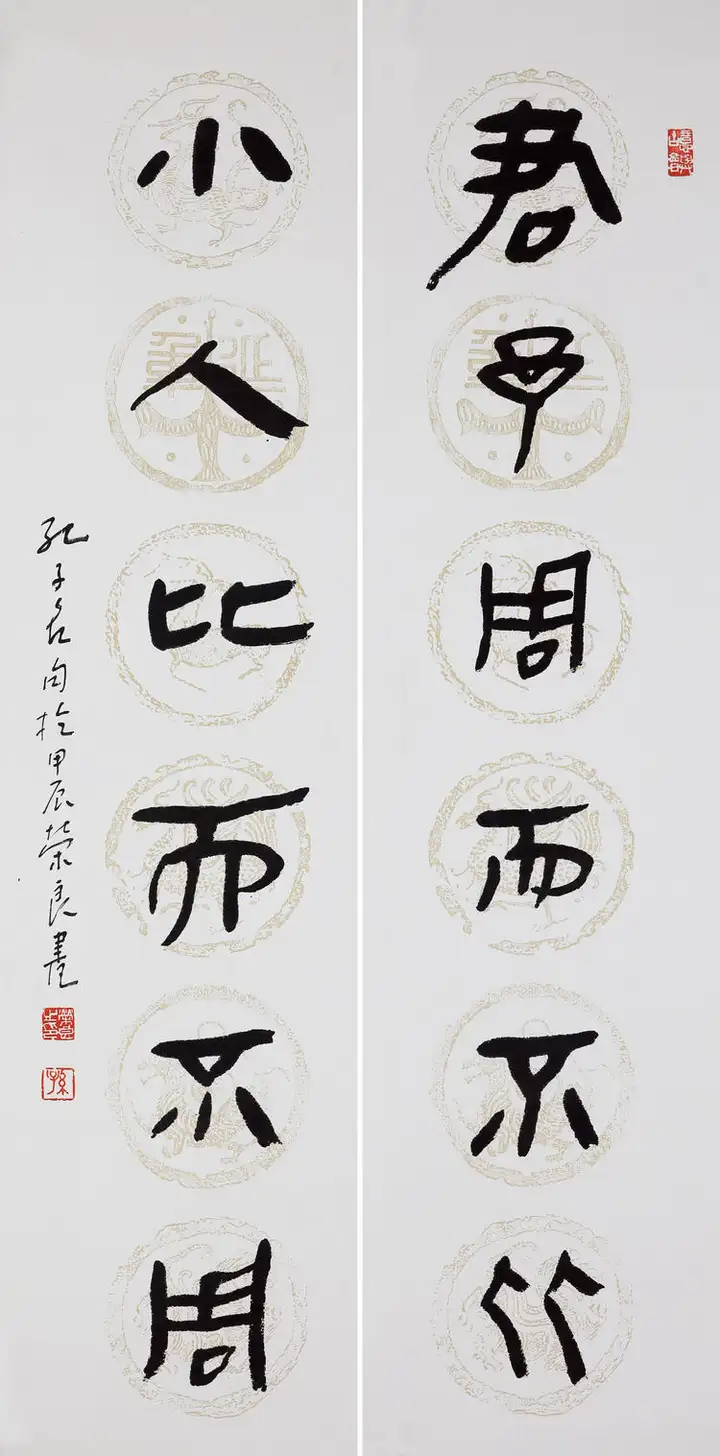 君子周而不比
小人比而不周
孔子名句於甲辰荣良書